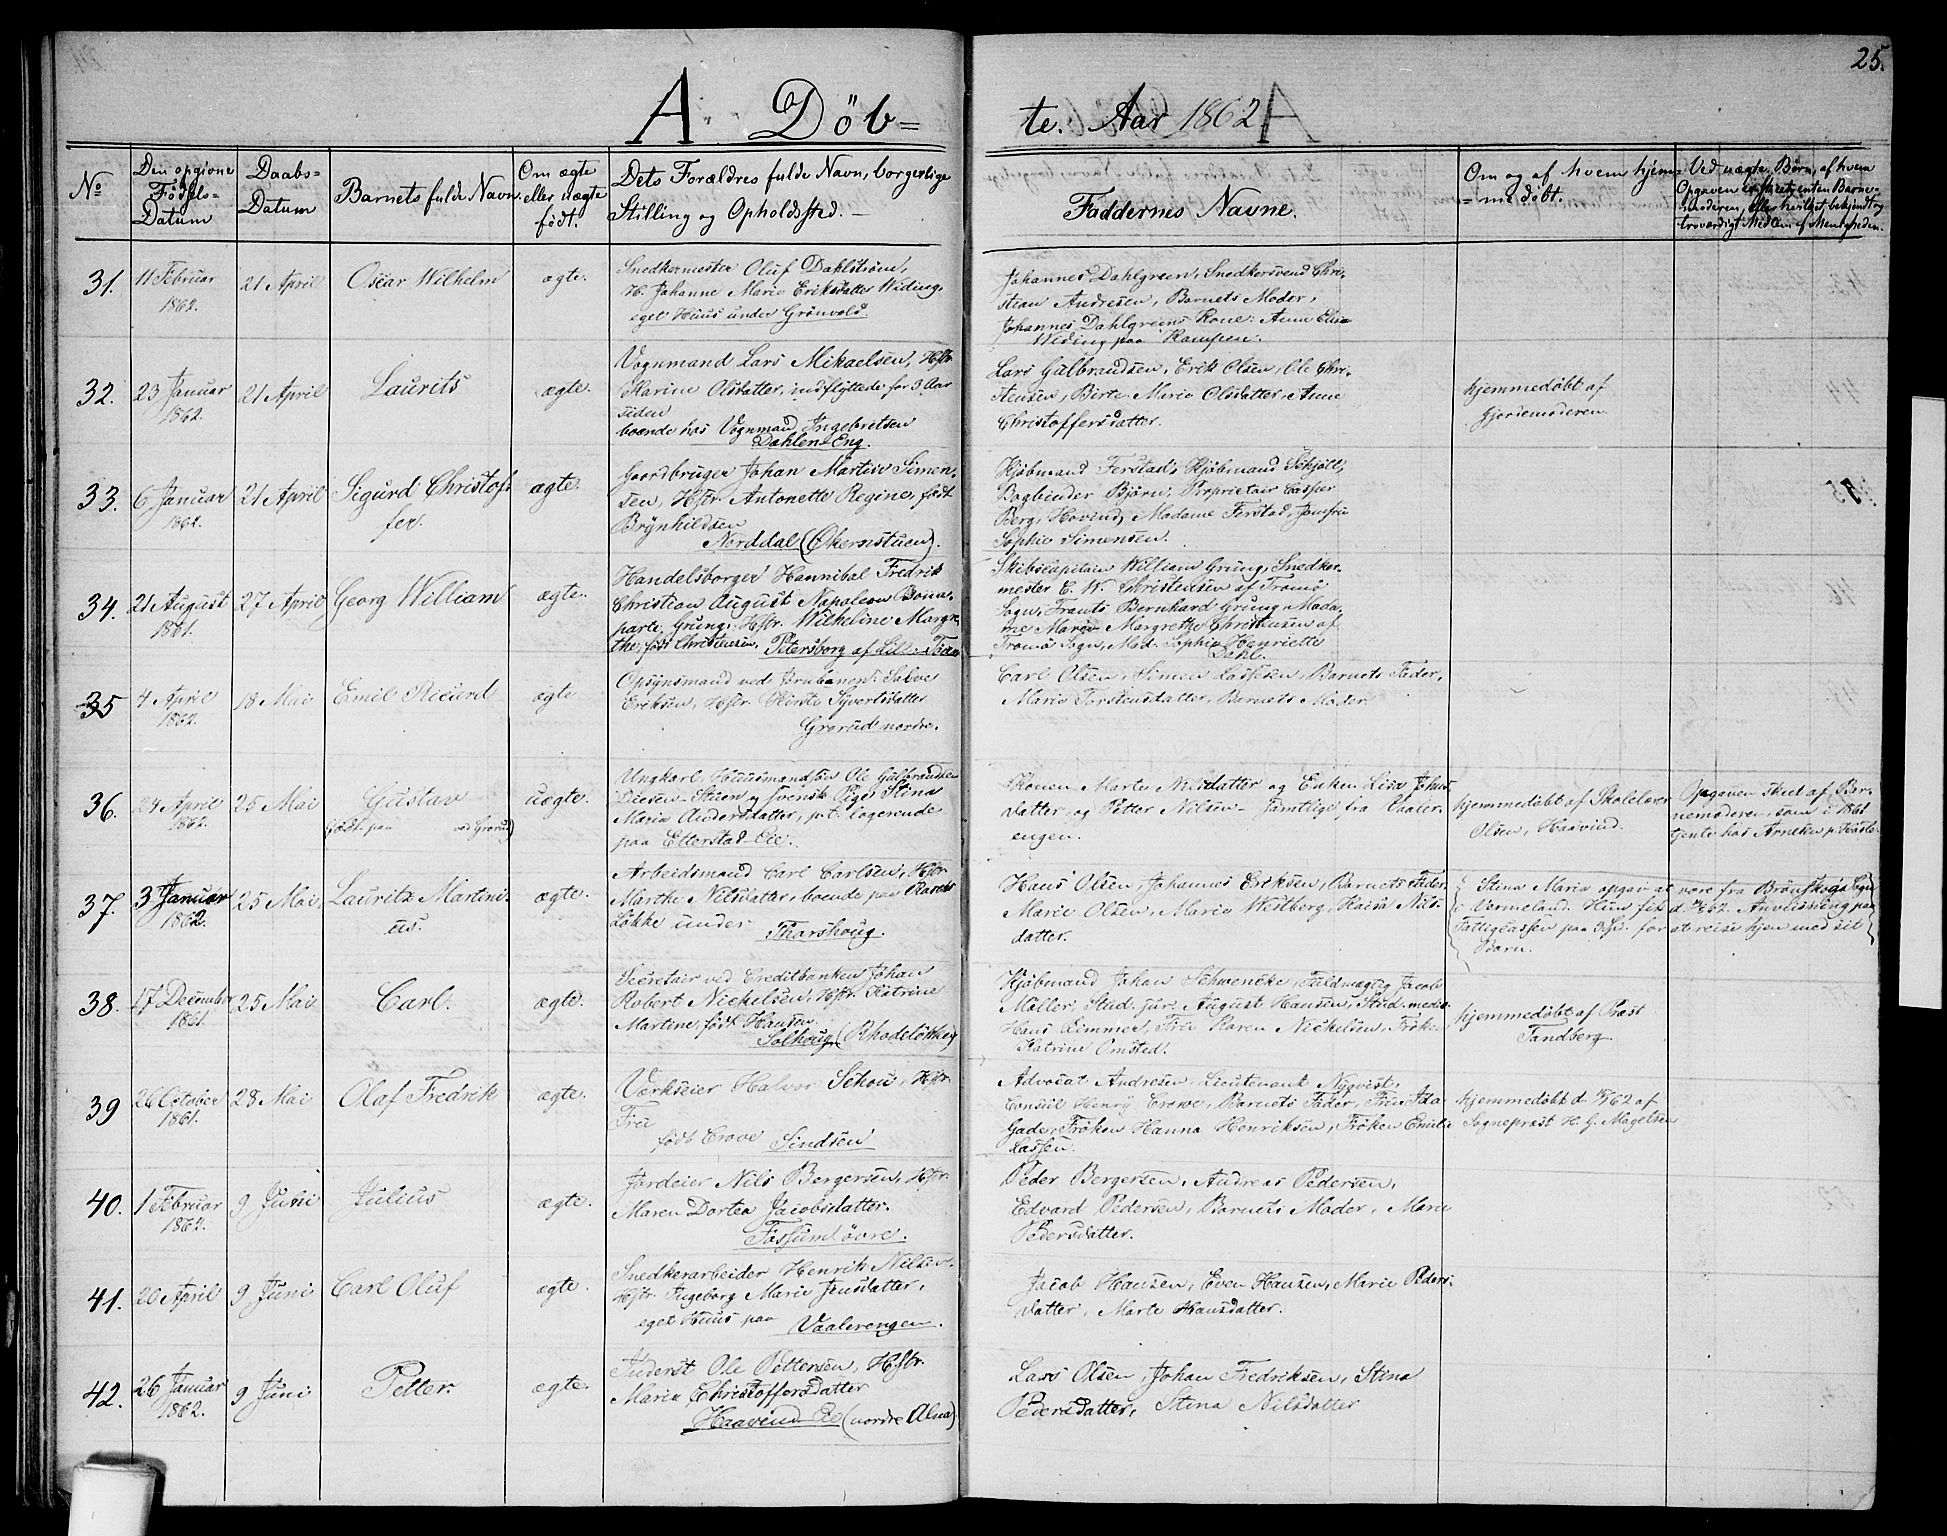 25.
A Döb= te. Aar 1862 A
No
Den opgivne Fødsels-Datum
Daabs-Datum
Barnets fulde Navn.
Om ægte eller uægte født.
Dets Forældres fulde Navn, borgerlige Stilling og Opholdssted.
Faddernes Navne.
Om og af hvem hjem=
=medöbt.
Ved uægte Børn, af hvem
Opgaven er skeet, enten Barne-
moderen, eller hvilket bekjendt og
troværdigt Medlem af Menigheden.
31. 11 Februar 1862. 21 April Oscar Wilhelm ægte.
Snedkermester Oluf Dahlström,
H. Johanne Marie Eriksdatter Widing,
eget Huus under Grönvold.
Johannes Dahlgreen, Snedkersvend Chri-
stian Andresen, Barnets Moder,
Johannes Dahlgreens Kone: Anne Elise
Widing paa Kampen.
32. 23 Januar 1862. 21 April Laurits ægte.
Vognmand Lars Mikaelsen, Hstr.
Marine Olsdatter, indflyttede for 3 Aar
siden
boende hos Vognmand Ingebretsen
Dahlen-Eng.
Lars Gulbrandsen, Erik Olsen, Ole Chri-
stensen, Birte Marie Olsdatter, Anne
Christoffersdatter.
hjemmedöbt af
Gjordemoderen.
33. 6 Januar 1862. 21 April Sigurd Christof-
fer. ægte.
Gaardbruger Johan Martin Simen-
sen, Hstr. Antonette Regine, født
Brynhildsen
Norddal (Økernstuen).
Kjöbmand Ferstad, Kjöbmand Schjöll,
Bogbinder Björn, Proprietair Casper
Berg, Hovind, Madame Ferstad, Jomfru
Sophie Simensen.
34. 21 August 1861. 27 April Georg William ægte.
Handelsborger Hannibal Fredrik
Christian August Napoleon Bona-
parte Grung, Hstr. Wilhelmine Margre-
the, født Christensen, Petersborg af Lill-Töien
Skibscapitain William Grung, Snedker-
mester E. W. Christensen af Tromö
Sogn, Frants Bernhard Grung, Mada-
me Marie Margrethe Christensen af
Tromö Sogn, Mad. Sophie Henriette
Dahl.
35 4 April 1862. 18 Mai Emil Ricard ægte
Opsynsmand ved Jernbanen Salve
Eriksen, Hstr. Kirste Syvertsdatter
Grorud nordre.
Carl Olsen, Simen Lassesen, Barnets Fader,
Marie Torstensdatter, Barnets Moder.
36. 24 April 1862. 25 Mai Gustav uægte.
født paa ved Grorud
Ungkarl, Huusmandsön Ole Gulbrandsen
Diesen-Stuen og svensk Pige Stina
Maria Andersdatter, p.t. logerende
paa Etterstad-Eie.
Konen Marte Nilsdatter og Enken Lisa Johns-
datter, og Petter Nilsen - samtlige fra Vaaler-
engen.
hjemmedöbt af Skolelærer
Olsen, Haavind.
Opgaven skeet af Bar-
nemoderen, som i 1861
tjente hos Arntsen p. Hasle.
37. 3 Januar 1862. 25 Mai. Lauritz Martini-
us. ægte.
Arbeidsmand Carl Carlsen, Hstr.
Marthe Nilsdatter, boende paa
Lökke under Tharshoug.
Hans Olsen, Johannes Eriksen, Barnets Fader
Marie Olsen, Marie Westberg, Kaisa Nils-
datter.
Stina Maria opgav at være fra Brönskogs Sogn
i Vermeland. Hun fik d. 1862. Anviisning paa
Fattigcassen paa 3 Sp. for at reise hjem med sit
Barn.
38. 17 December 1861. 25 Mai Carl. ægte.
Secretair ved Creditbanken Johan
Robert Nickelsen, Hstr. Katrine
Martine, født Hansen
Solhoug (Rhodeløkken)
Kjöbmand Johan Schwencke, Fuldmægtig Jacob
Möller, Stud. jur. August Hansen, Stud. medic.
Hans Zimmer, Fru Karen Nickelsen, Fröken
Katrine Omsted.
hjemmedöbt af Præst
Tandberg.
39 26 October 1861. 28 Mai Olaf Fredrik ægte.
Værkseier Halvor Schou, Hstr.
Fru
født Crowe Sindsen
Advocat Andresen, Lieutenant Nyqvist,
Consul Henry Crowe, Barnets Fader, Fru Ida
Gade, Fröken Hanna Henriksen, Fröken Emilie
Lassen.
hjemmedöbt d. 62 af
Sogneprest H. G. Magelsen
40. 1 Februar 1862. 9 Juni Julius ægte.
Jordeier Nils Bergersen, Hstr.
Maren Dortea Jacobsdatter.
Fossum övre.
Peder Bergersen, Andreas Pedersen,
Edvard Pedersen, Barnets Moder, Marie
Pedersdatter.
41. 20 April 9 Juni Carl Oluf ægte.
Snedkerarbeider Henrik Nilsen,
Hstr. Ingeborg Marie Jensdatter,
eget Huus paa Vaalerengen.
Jacob Hansen, Even Hansen, Marie Peders-
datter, Marte Hansdatter.
42. 26 Januar 1862. 9 Juni Petter. ægte.
Inderst Ole Pettersen, Hstr.
Maria Christoffersdatter
Haavind-Eie (nordre Alna)
Lars Olsen, Johan Fredriksen, Stina
Pedersdatter, Stina Nilsdatter